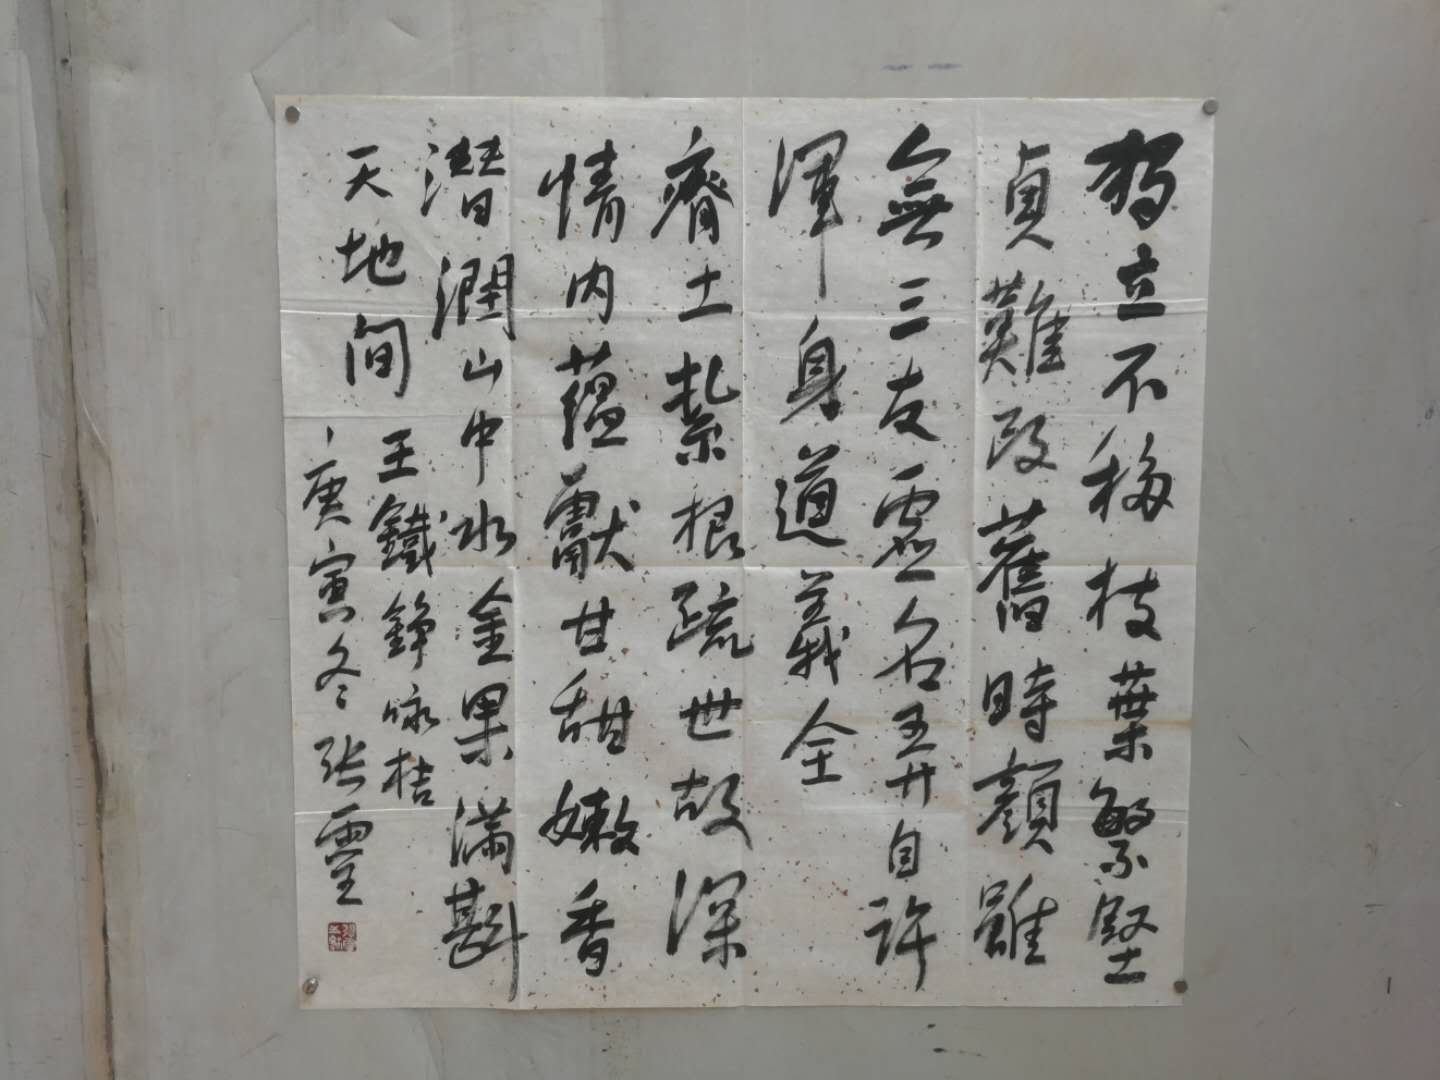 獨立不移枝葉繁堅
貞難改舊時顏雖
無三友虛名弄自許
渾身道義全
瘠土紮根疏世故深
情內蘊獻甘甜嫩香
潛潤山中水金果滿斟
天地間
王鐵錚咏桔
庚寅冬張靈